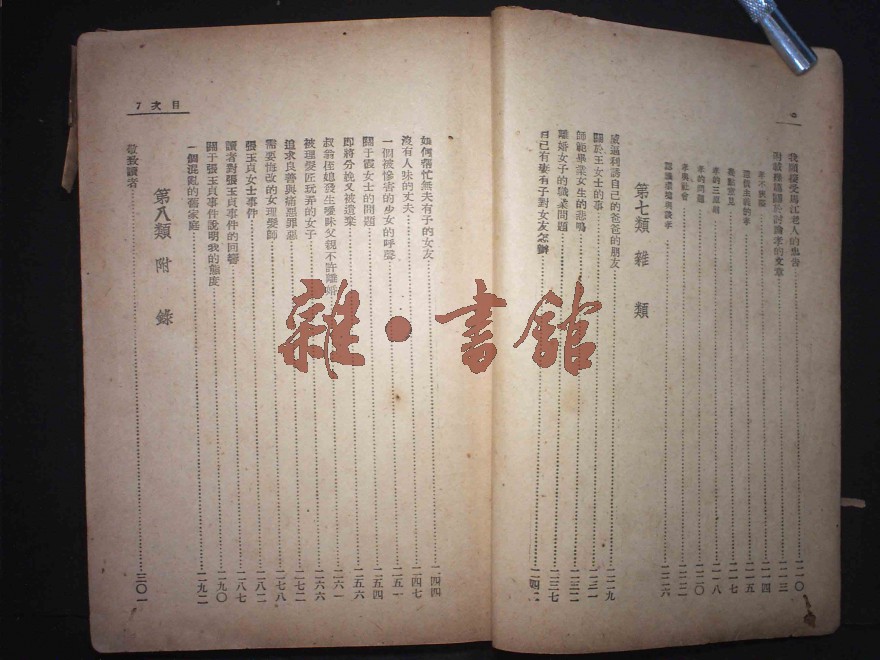 我關接受馬江老人的忠告……二一〇
附錄幾篇關於討論孝的文章……二一三
孝不狹隘……二一四
孝的三原則……二一八
孝的問題……二二〇
孝與社會……二二二
第七類 雜類
威逼利誘自己的爸爸的朋友……二二九
關於王女士的事……二三一
師範畢業女生的悲鳴……二三二
離婚女子的職業問題……二三七
自己有妻有子對女友怎辦……二四二
目次 7
如何帮忙無夫有子的女友……二四四
沒有人味的丈夫……二四七
一個被慘害的少女的呼聲……二五一
關于霞女士的問題……二五四
即將分娩又被遺棄……二五六
叔翁侄媳發生曖昧父親不許離婚……二六一
被理髮匠玩弄的女子……二六六
追求良善與痛惡罪惡……二七二
需要悔改的女理髮師……二七八
張玉貞女士事件……二八二
讀者對張玉貞事件的回響……二八七
關于張玉貞事件說明我的態度……二九〇
一個混亂的舊家庭……二九二
第八類 附錄
敬致讀者……三〇一
雜·書館